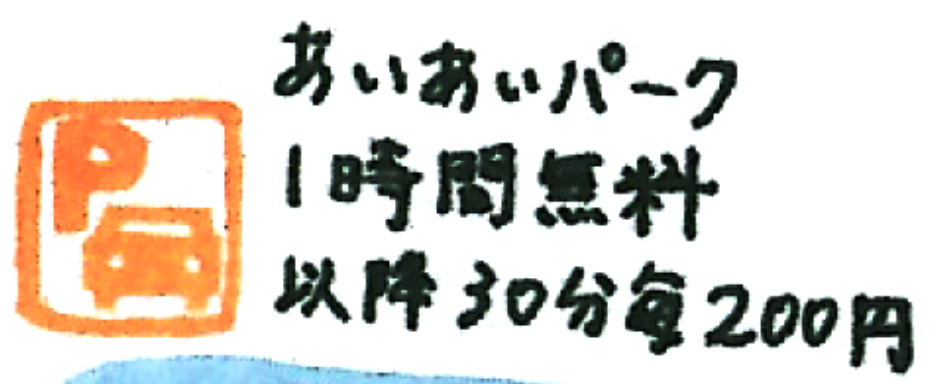 P
あいあいパーク
1時間無料
以降30分毎200円